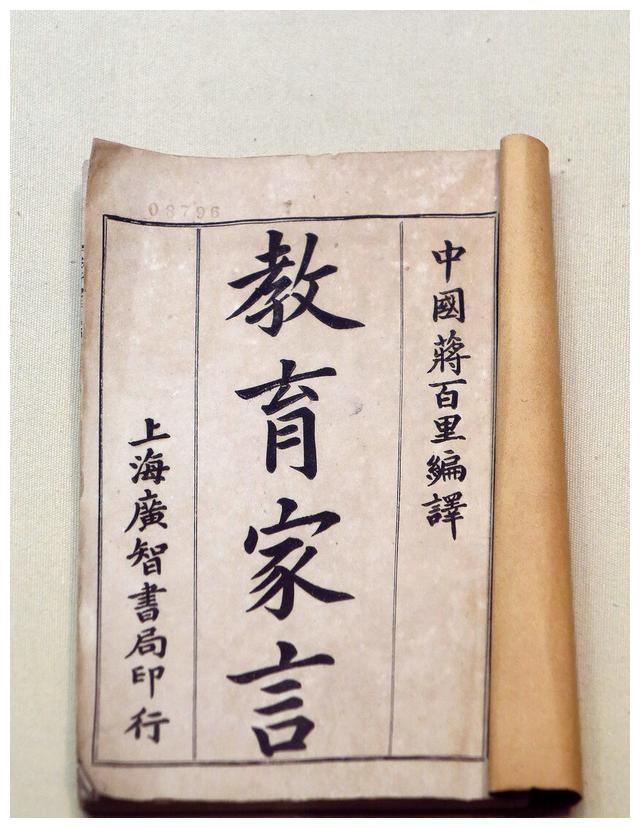 08796
中國蔣百里編譯
教育家言
上海廣智書局印行